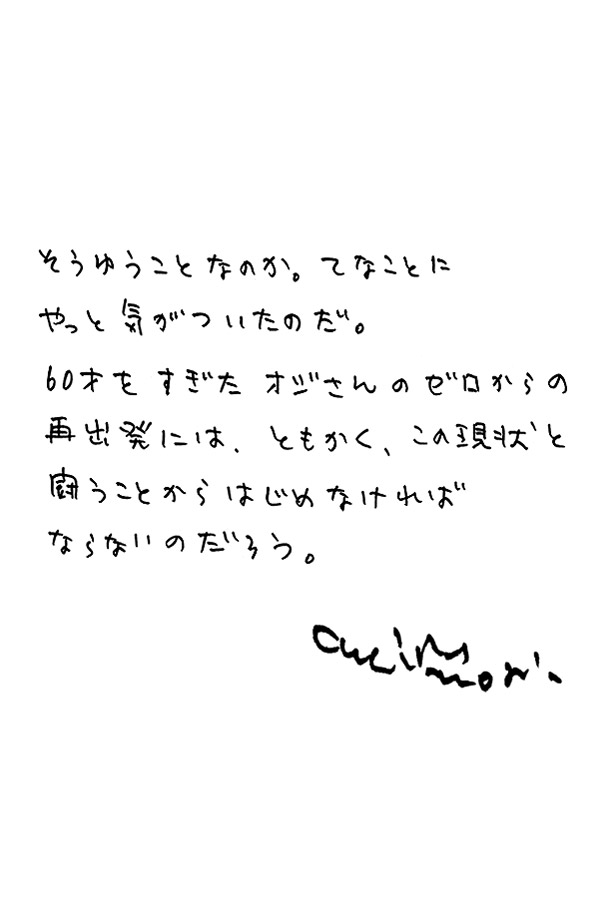 そうゆうことなのか。てなことに
やっと気がついたのだ。
60才をすぎたオジさんのゼロからの
再出発には、ともかく、この現状と
闘うことからはじめなければ
ならないのだろう。